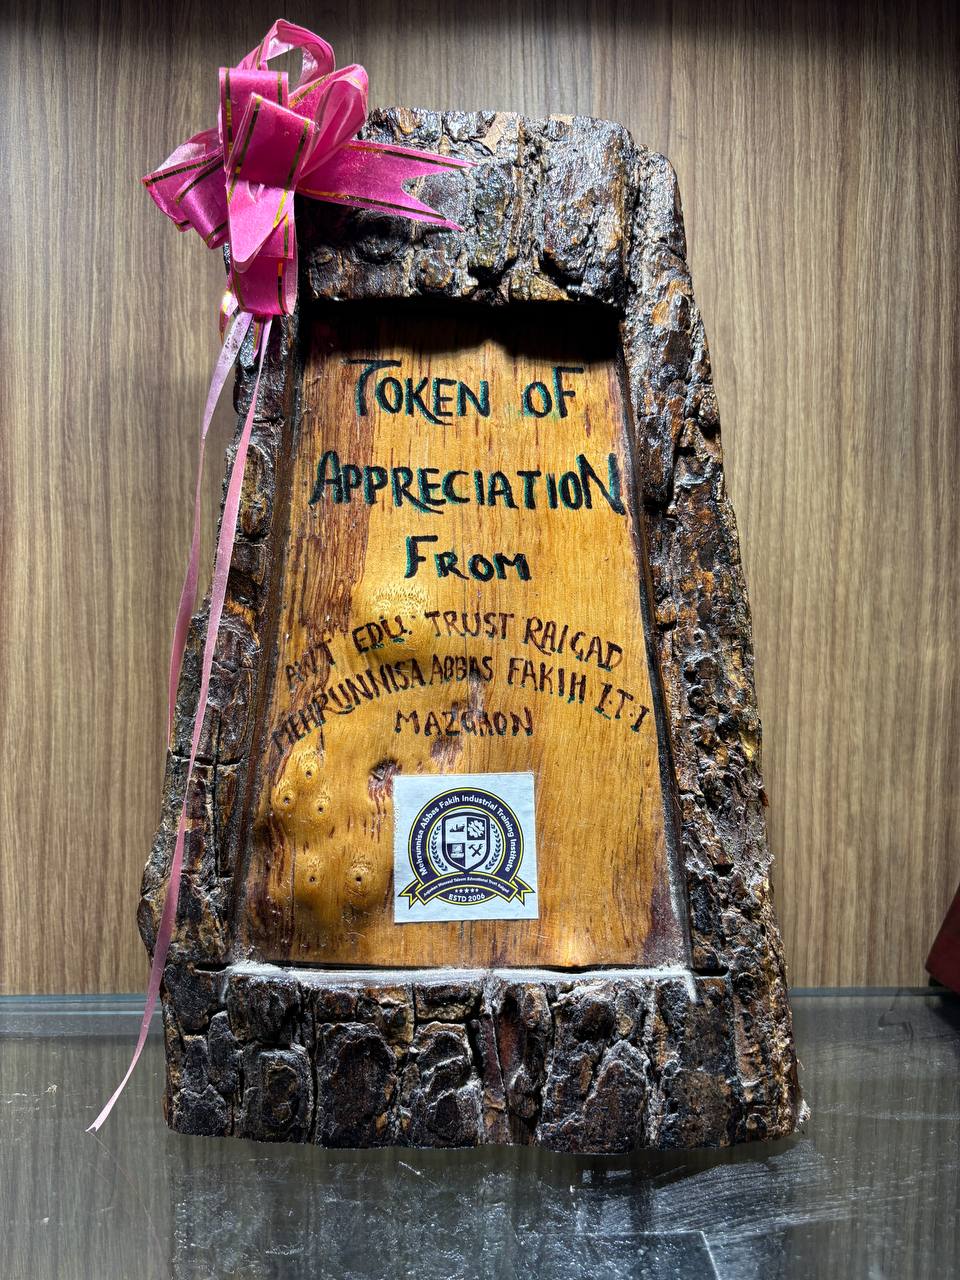 TOKEN OF
APPRECIATION
FROM
EDU. TRUST RAIGAD
MEHRUNNISA ABBAS FAKIH I.T.I
MAZGAON
Mehrunnisa Abbas Fakih Industrial Training Institute
ESTD 2006